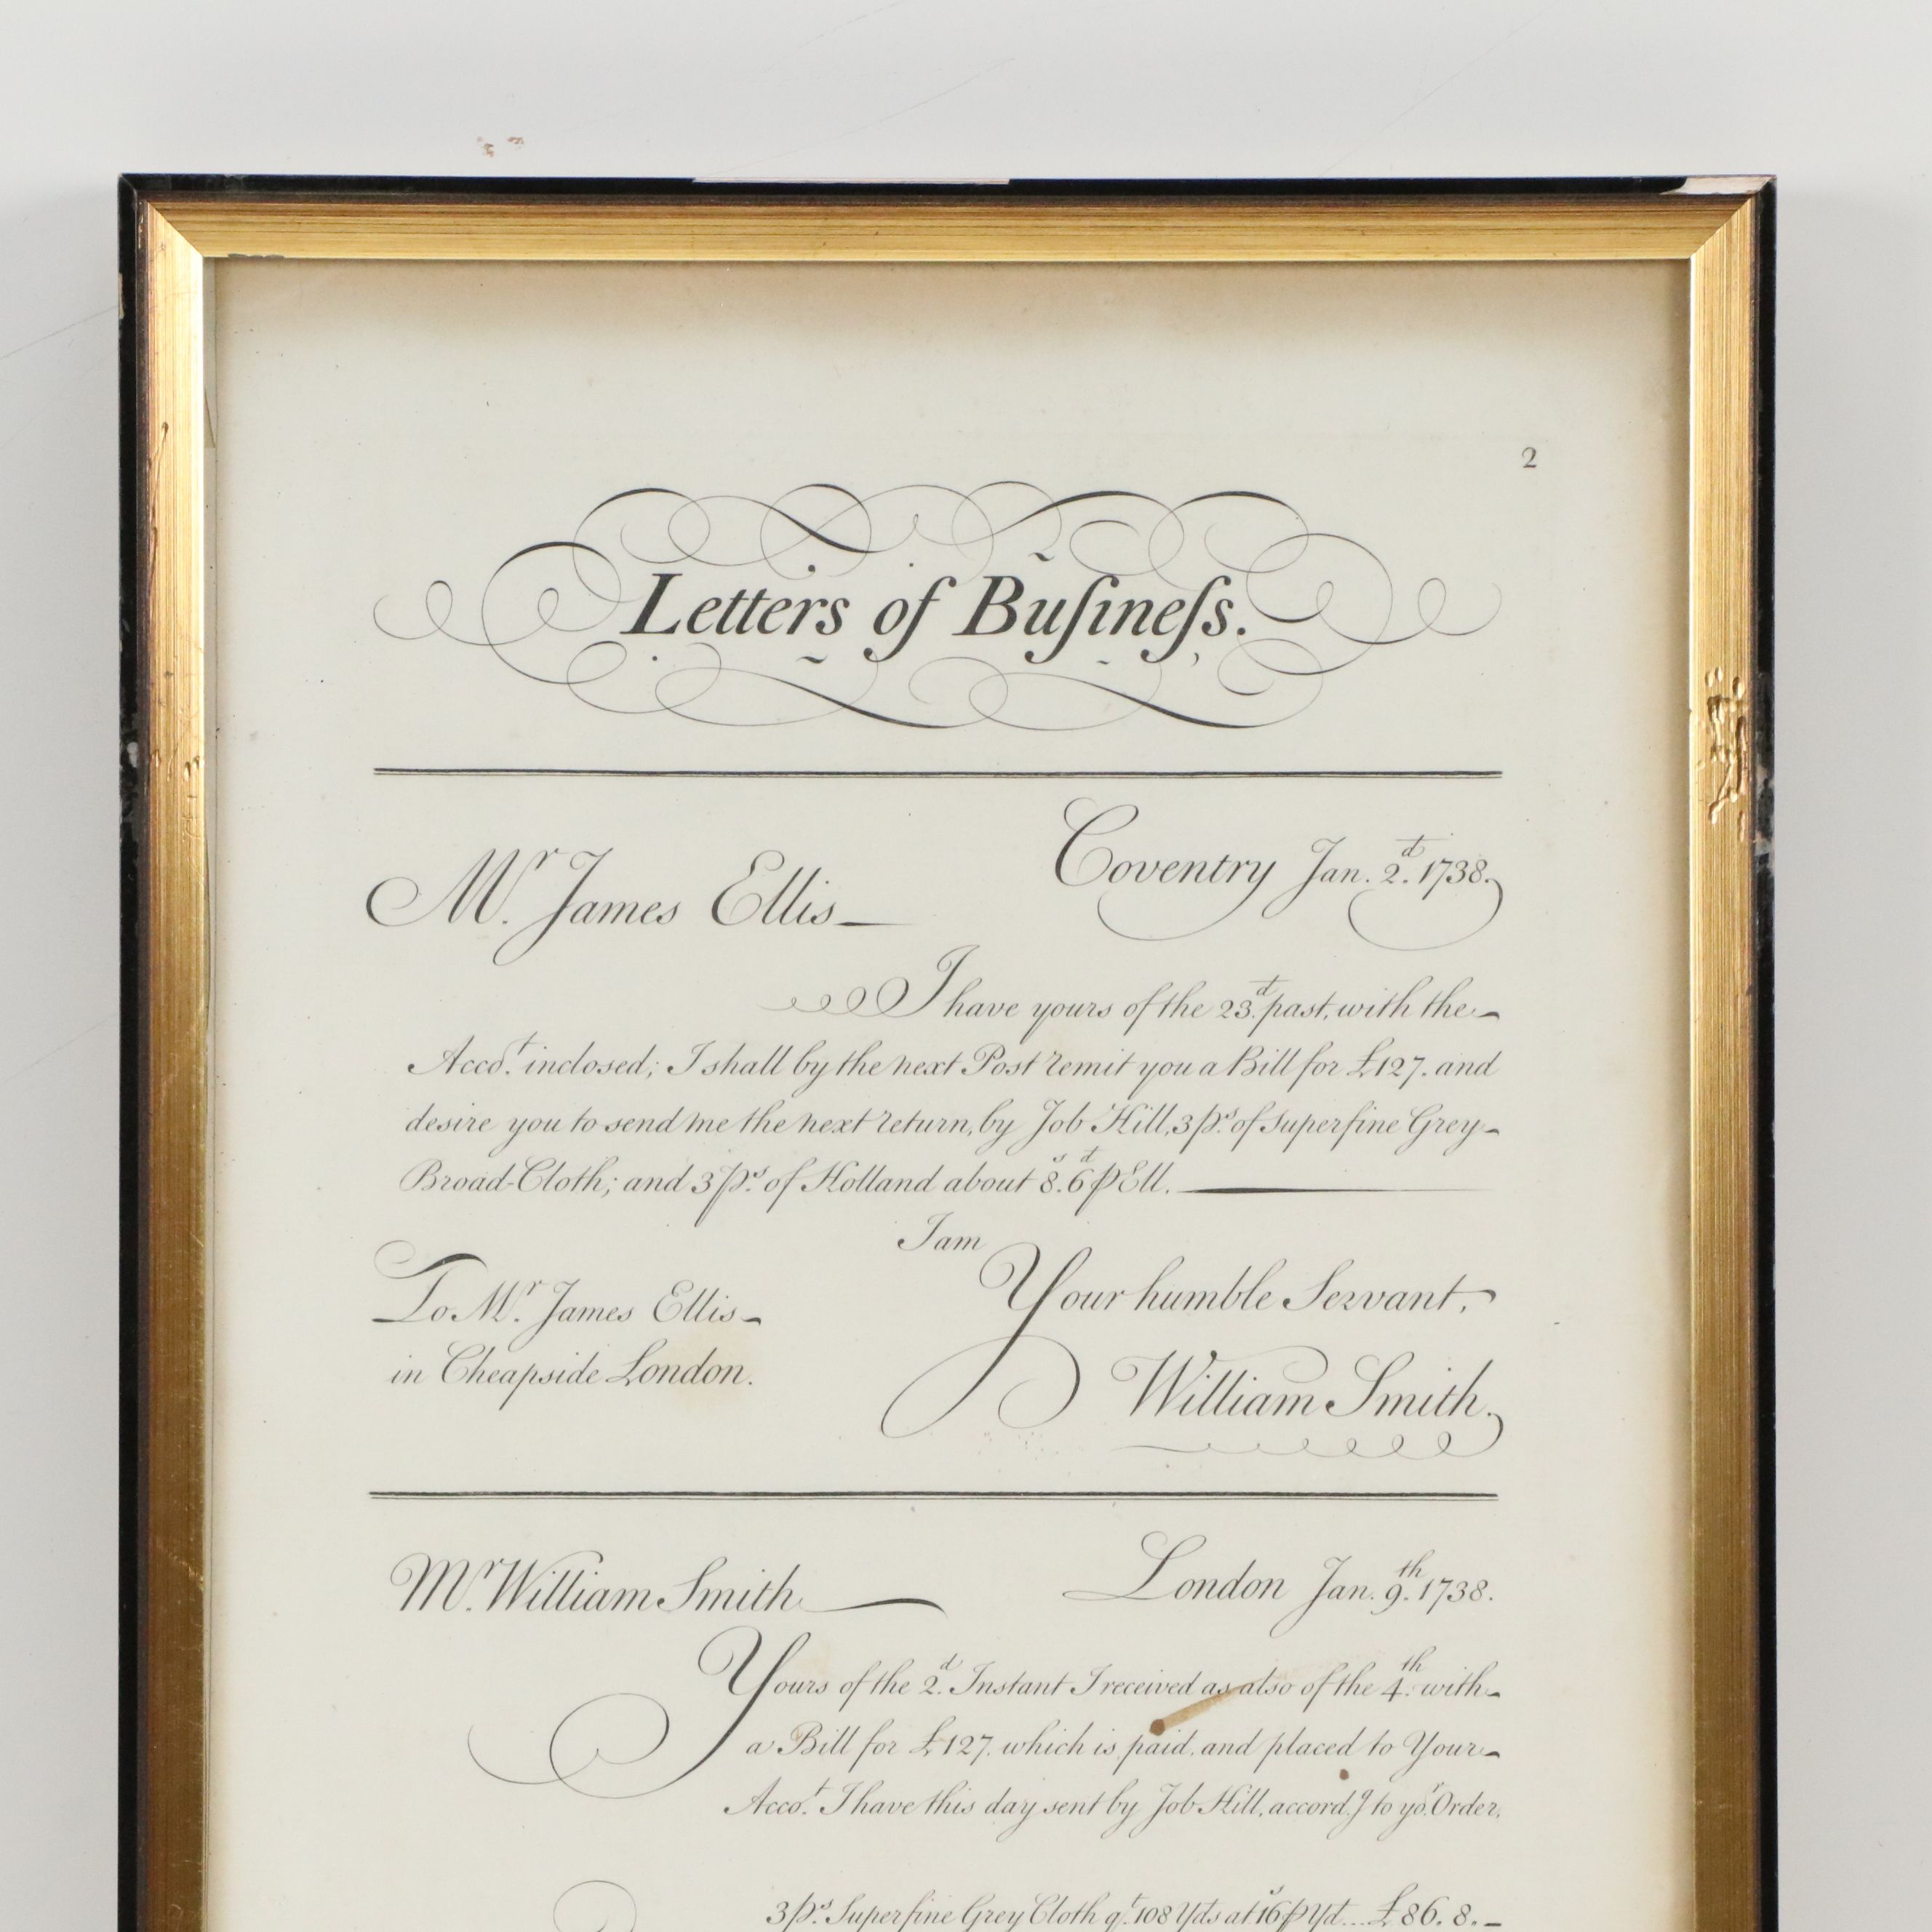 2
Letters of Buſineſs.
Coventry Jan. 2.ᵈ 1738.
Mʳ. James Ellis
I have yours of the 23.ᵈ past, with the
Acco.ᵗ inclosed; I shall by the next Post remit you a Bill for £127. and
desire you to send me the next return, by Job Hill, 3 pˢ. of Superfine Grey
Broad-Cloth; and 3 pˢ. of Holland about 8.ˢ 6ᵈ ⅌ Ell.
I am
Your humble Servant,
To Mʳ. James Ellis
in Cheapside London.
William Smith.
Mʳ. William Smith
London Jan. 9.ᵗʰ 1738.
Yours of the 2.ᵈ Instant I received as also of the 4.ᵗʰ with
a Bill for £127. which is paid. and placed to Your
Acco.ᵗ I have this day sent by Job Hill, accord.ᵍ to yo.ʳ Order.
3 pˢ. Superfine Grey Cloth q.ᵗ 108 Yds at 16ˢ ⅌ Yd ... £86. 8. –